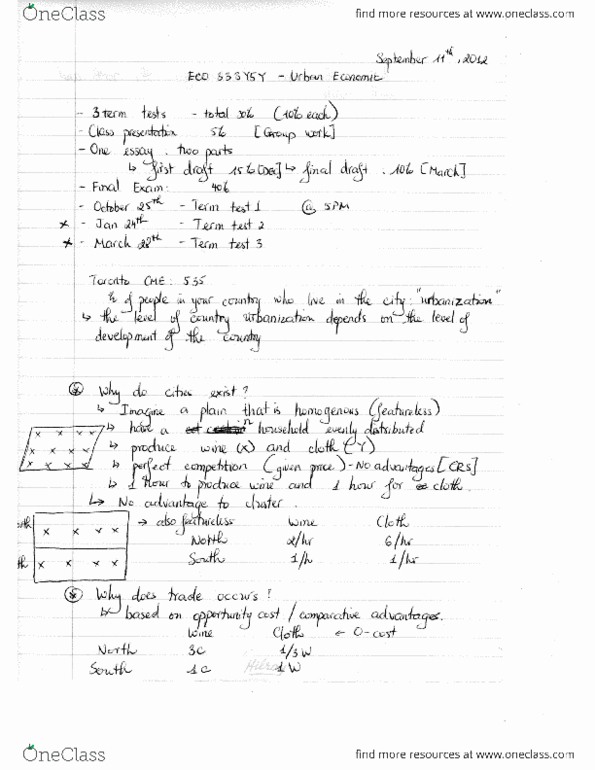 OneClass
find more resources at www.oneclass.com
September 11th, 2012
ECO 333Y5Y - Urban Economic
- 3 term tests - total 30% (10% each)
- Class presentation 5% [Group work]
- One essay . two parts
↳ first draft 15% [Dec] ↳ final draft . 10% [March]
- Final Exam: 40%
- October 25th - Term test 1 @ 5PM
* - Jan 24th - Term test 2
* - March 28th - Term test 3
Toronto CME: 535
% of people in your country who live in the city: "urbanization"
↳ the level of country urbanization depends on the level of
development of the country
Why do cities exist?
↳ Imagine a plain that is homogenous (featureless)
↳ have a n household evenly distributed
↳ produce wine (X) and cloth (Y)
↳ perfect competition (given price) - No advantages [CRS]
↳ 1 hour to produce wine and 1 hour for cloth.
↳ No advantage to cluster.
→ also featureless Wine Cloth
North 2/hr 6/hr
South 1/h 1/hr
Why does trade occurs?
↳ based on opportunity cost / comparative advantages.
Wine Cloth ← O-cost
North 3c 1/3 W
South 1c 1 W
OneClass
find more resources at www.oneclass.com